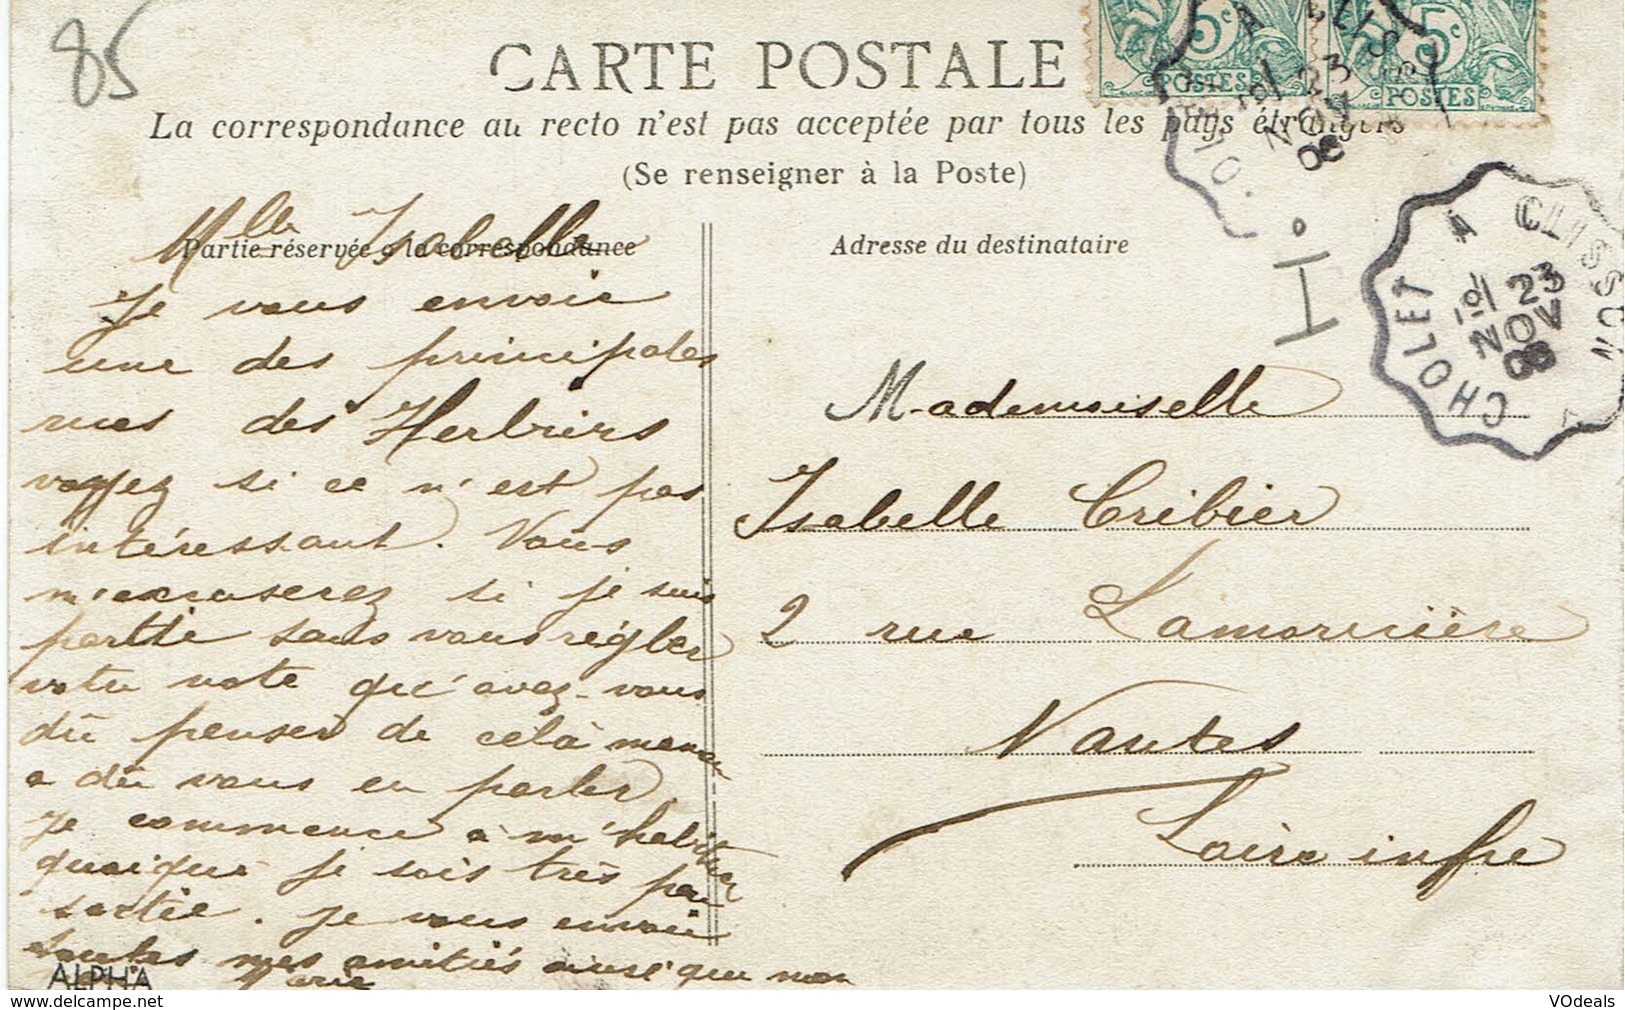 85
CARTE POSTALE
La correspondance au recto n'est pas acceptée par tous les pays étrangers
(Se renseigner à la Poste)
Partie réservée à la correspondance
Adresse du destinataire
5c
POSTES
5c
POSTES
23
NOV
08
CHOLET A CLISSON
23
NOV
08
Mlle Isabelle
Je vous envoie
une des principales
rues des Herbiers
voyez si ce n'est pas
intéressant. Vous
m'excuserez si je suis
partie sans vous régler
votre note qu'avez-vous
dû penser de celà maman
a dû vous en parler
je commence à m'habituer
quoique je sois très peu
sortie. Je vous envoie
toutes mes amitiés ainsi que mon
Marie
ALPHA
Mademoiselle
Isabelle Cribier
2 rue Lamoricière
Nantes
Loire infre
www.delcampe.net
VOdeals